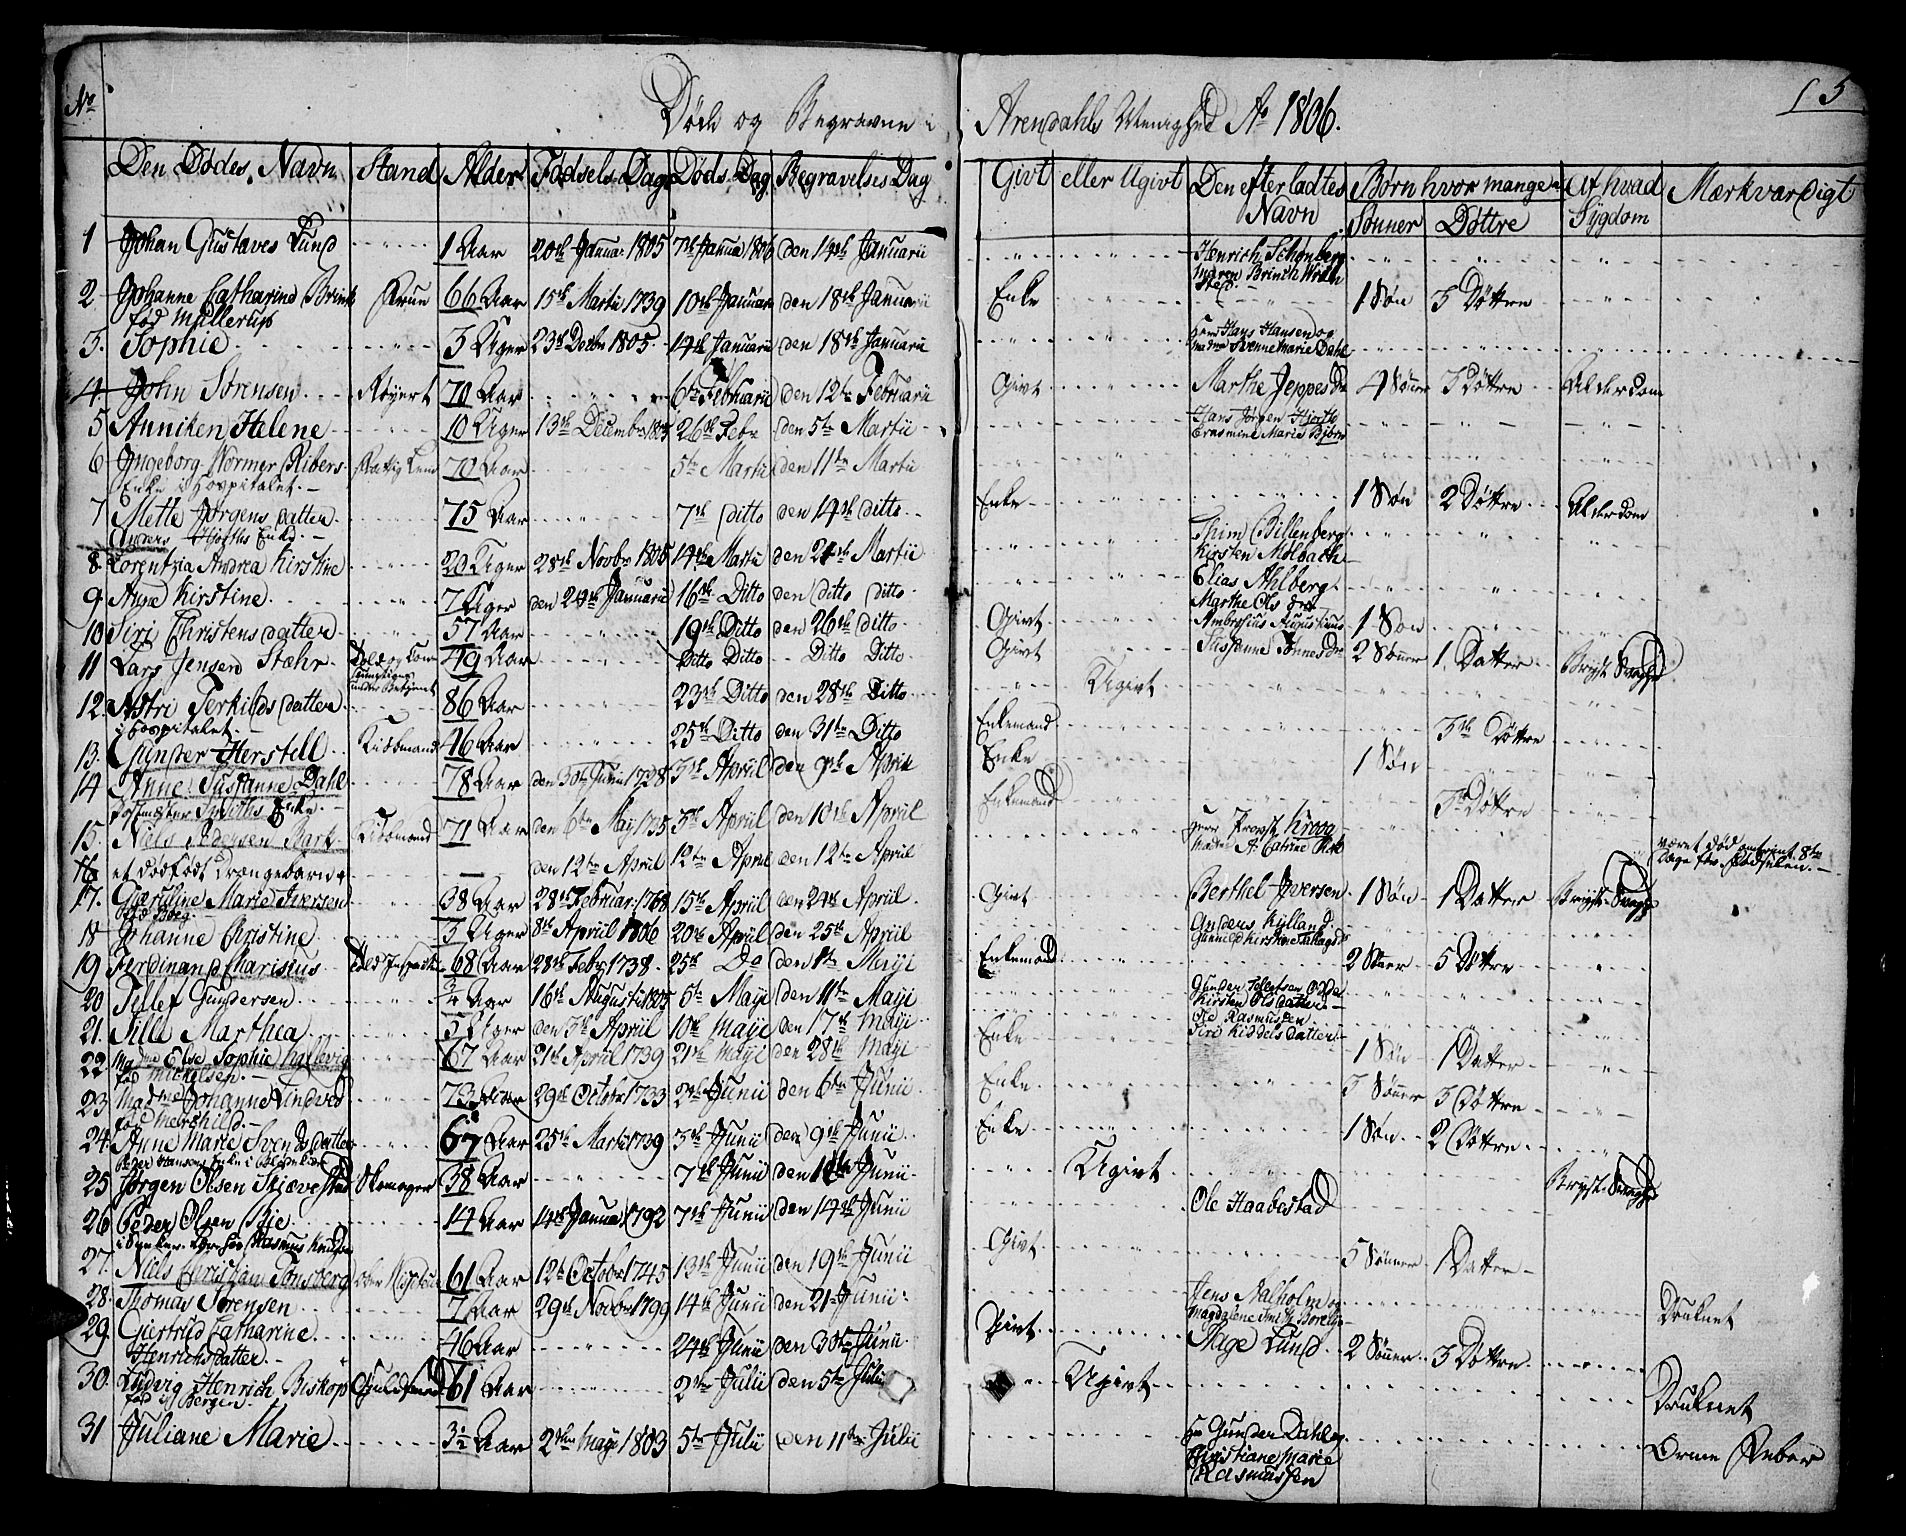 Døde og Begravne i Arendahls Menighed Ao 1806. 5
No Den Dødes Navn Stand Alder Fødsels Dag Døds Dag Begravelses Dag Givt eller Ugivt Den efterladtes Navn Børn hvor mange Af hvad Sygdom Mærkværdigt
Sønner Døttre
1 Johan Gustaves Lund 1 Aar 20de Janua: 1805 7de Janua 1806 den 14de Januarii Henrich Schønberg
2 Johanne Catharine Brink Frue 66 Aar 15de Martii 1739 10de Januarii den 18de Januarii Enke 1 Søn 3 Døttre
fød Müllerup
3. Sophie 3 Uger 23de Decbr 1805 14de Januarii den 18de Januarii Hans Hansen og
Svenne Marie Dahl
4 John Sørensen 70 Aar 6te Februarii den 12te Februarii Givt Marthe Jeppes Dr 4 Sønner 3 Døttre Alderdom
5 Anniken Helene 10 Uger 13de Decembr 1805 26de Febr den 5te Martii Hans Jørgen Hjorth
Erasmine Marie Bjørn
6 Ingeborg Normer Ribers Fattig Lem 70 Aar 5te Martii den 11te Martii
Enke i Hospitalet
7 Mette Jørgens Datter 75 Aar 7de ditto den 14de ditto Enke 1 Søn 2 Døttre Alderdom
Anders Enke
8 Lorentzia Andrea Kirstine 20 Uger 28de Novbr 1805 14de Martii den 21de Martii Thim Billenberg
Kirsten Molbach
9 Anne Kirstine 7 Uger den 24de Januarii 16de Ditto den ditto ditto Elias Ahlberg
Marthe Ols dr
10 Siri Christens Datter 57 Aar 19de Ditto den 26de ditto Givt Ambrosius Augustinus 1 Søn
11 Lars Jensen Stæhr 49 Aar Ditto Ditto Ditto Ditto Givt Susanne Tønnes Dr 2 Sønner 1 Datter Bryst Svaghed
12. Astri Terkilds Datter 86 Aar 23de Ditto den 28de Ditto Ugivt
i Hospitalet
13. Gunder Herstell Kiøbmand 46 Aar 25de Ditto den 31te Ditto Enkemand 3de Døttre
14 Anne Susanne Dahl 78 Aar den 30te Junii 1728 3de April den 9de April Enke 1 Søn
Postmester Enke
15. Niels Pedersen Bark Kiøbmand 71 Aar den 6te May 1735 3de April den 10de April Enkemand 3de Døttre
16 et dødfødt Drengebarn den 12te April 12te April den 12te April Herr Provst Kroog været død omtrent 8te
Dage før Fødselen.
17. Gieruline Marie Iversen 38 Aar 28de Februar: 1768 15de April den 24de April Givt Berthel Iversen 1 Søn 1 Datter Bryst Svaghed
fød Boeg
18 Johanne Christine 3 Uger 8de April 1806 20de April den 25de April Anders Kylland
19 Ferdinand Charisius Told Inspecteur 68 Aar 28de Febr 1738 25de Do den 1te Mayi Enkemand 2 Sønner 5 Døttre
20 Tellef Gundersen 3/4 Aar 16de Augusti 1805 5te Mayi den 11te Mayi Gunder Tellefsen
Kirsten Ols Datter
21. Sille Marthea 5 Uger den 3de April 10de Mayi den 17de Mayi Ole Rasmussen
Siri Kiddels Datter
22. Madme Else Sophie Kallevig 67 Aar 21de April 1739 21de Mayi den 28de Mayi Enke 1 Søn 1 Datter
fød Mickelsen
23 Madme Johanne Vindved 73 Aar 29de Octobr 1733 2den Junii den 6te Junii Enke 3 Sønner 3 Døttre
fød Herskild
24. Anne Marie Svends Datter 67 Aar 25de Martii 1739 3de Junii den 9de Junii Enke 1 Søn 2 Døttre
Peder Hansens Enke i
25 Jørgen Olsen Skiævestad Skomager 38 Aar 7de Junii den Junii Ugivt Bryst Svaghed
26 Peder Olsen Bje 14 Aar 14de Janua: 1792 7de Junii den 14de Junii Ole Haabestad
27. Niels Christian Tønsberg 61 Aar 12te Octobr 1745 13de Junii den 19de Junii Givt 5 Sønner 1 Datter
28. Thomas Sørensen 7 Aar 29de Novbr 1799 14de Junii den 21 Junii Jens Malholm og Druknet
29. Giertrud Catharine 46 Aar 24de Junii den 30te Junii Givt Aage Lund 2 Sønner 3 Døttre
Henrichs Datter
30. Ludvig Henrich Biskop Guldsmed 61 Aar 2den Julii den 5te Julii Ugivt Druknet
fød i Bergen
31 Juliane Marie 3 1/2 Aar 2den Mayi 1803 5te Julii den 11te Julii Hr Gunder Dahl og Orme Feber
Christiane Marie
Rasmussen